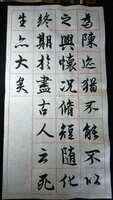 為陳迹猶不能不以
之興懷況脩短隨化
終期於盡古人云死
生亦大矣